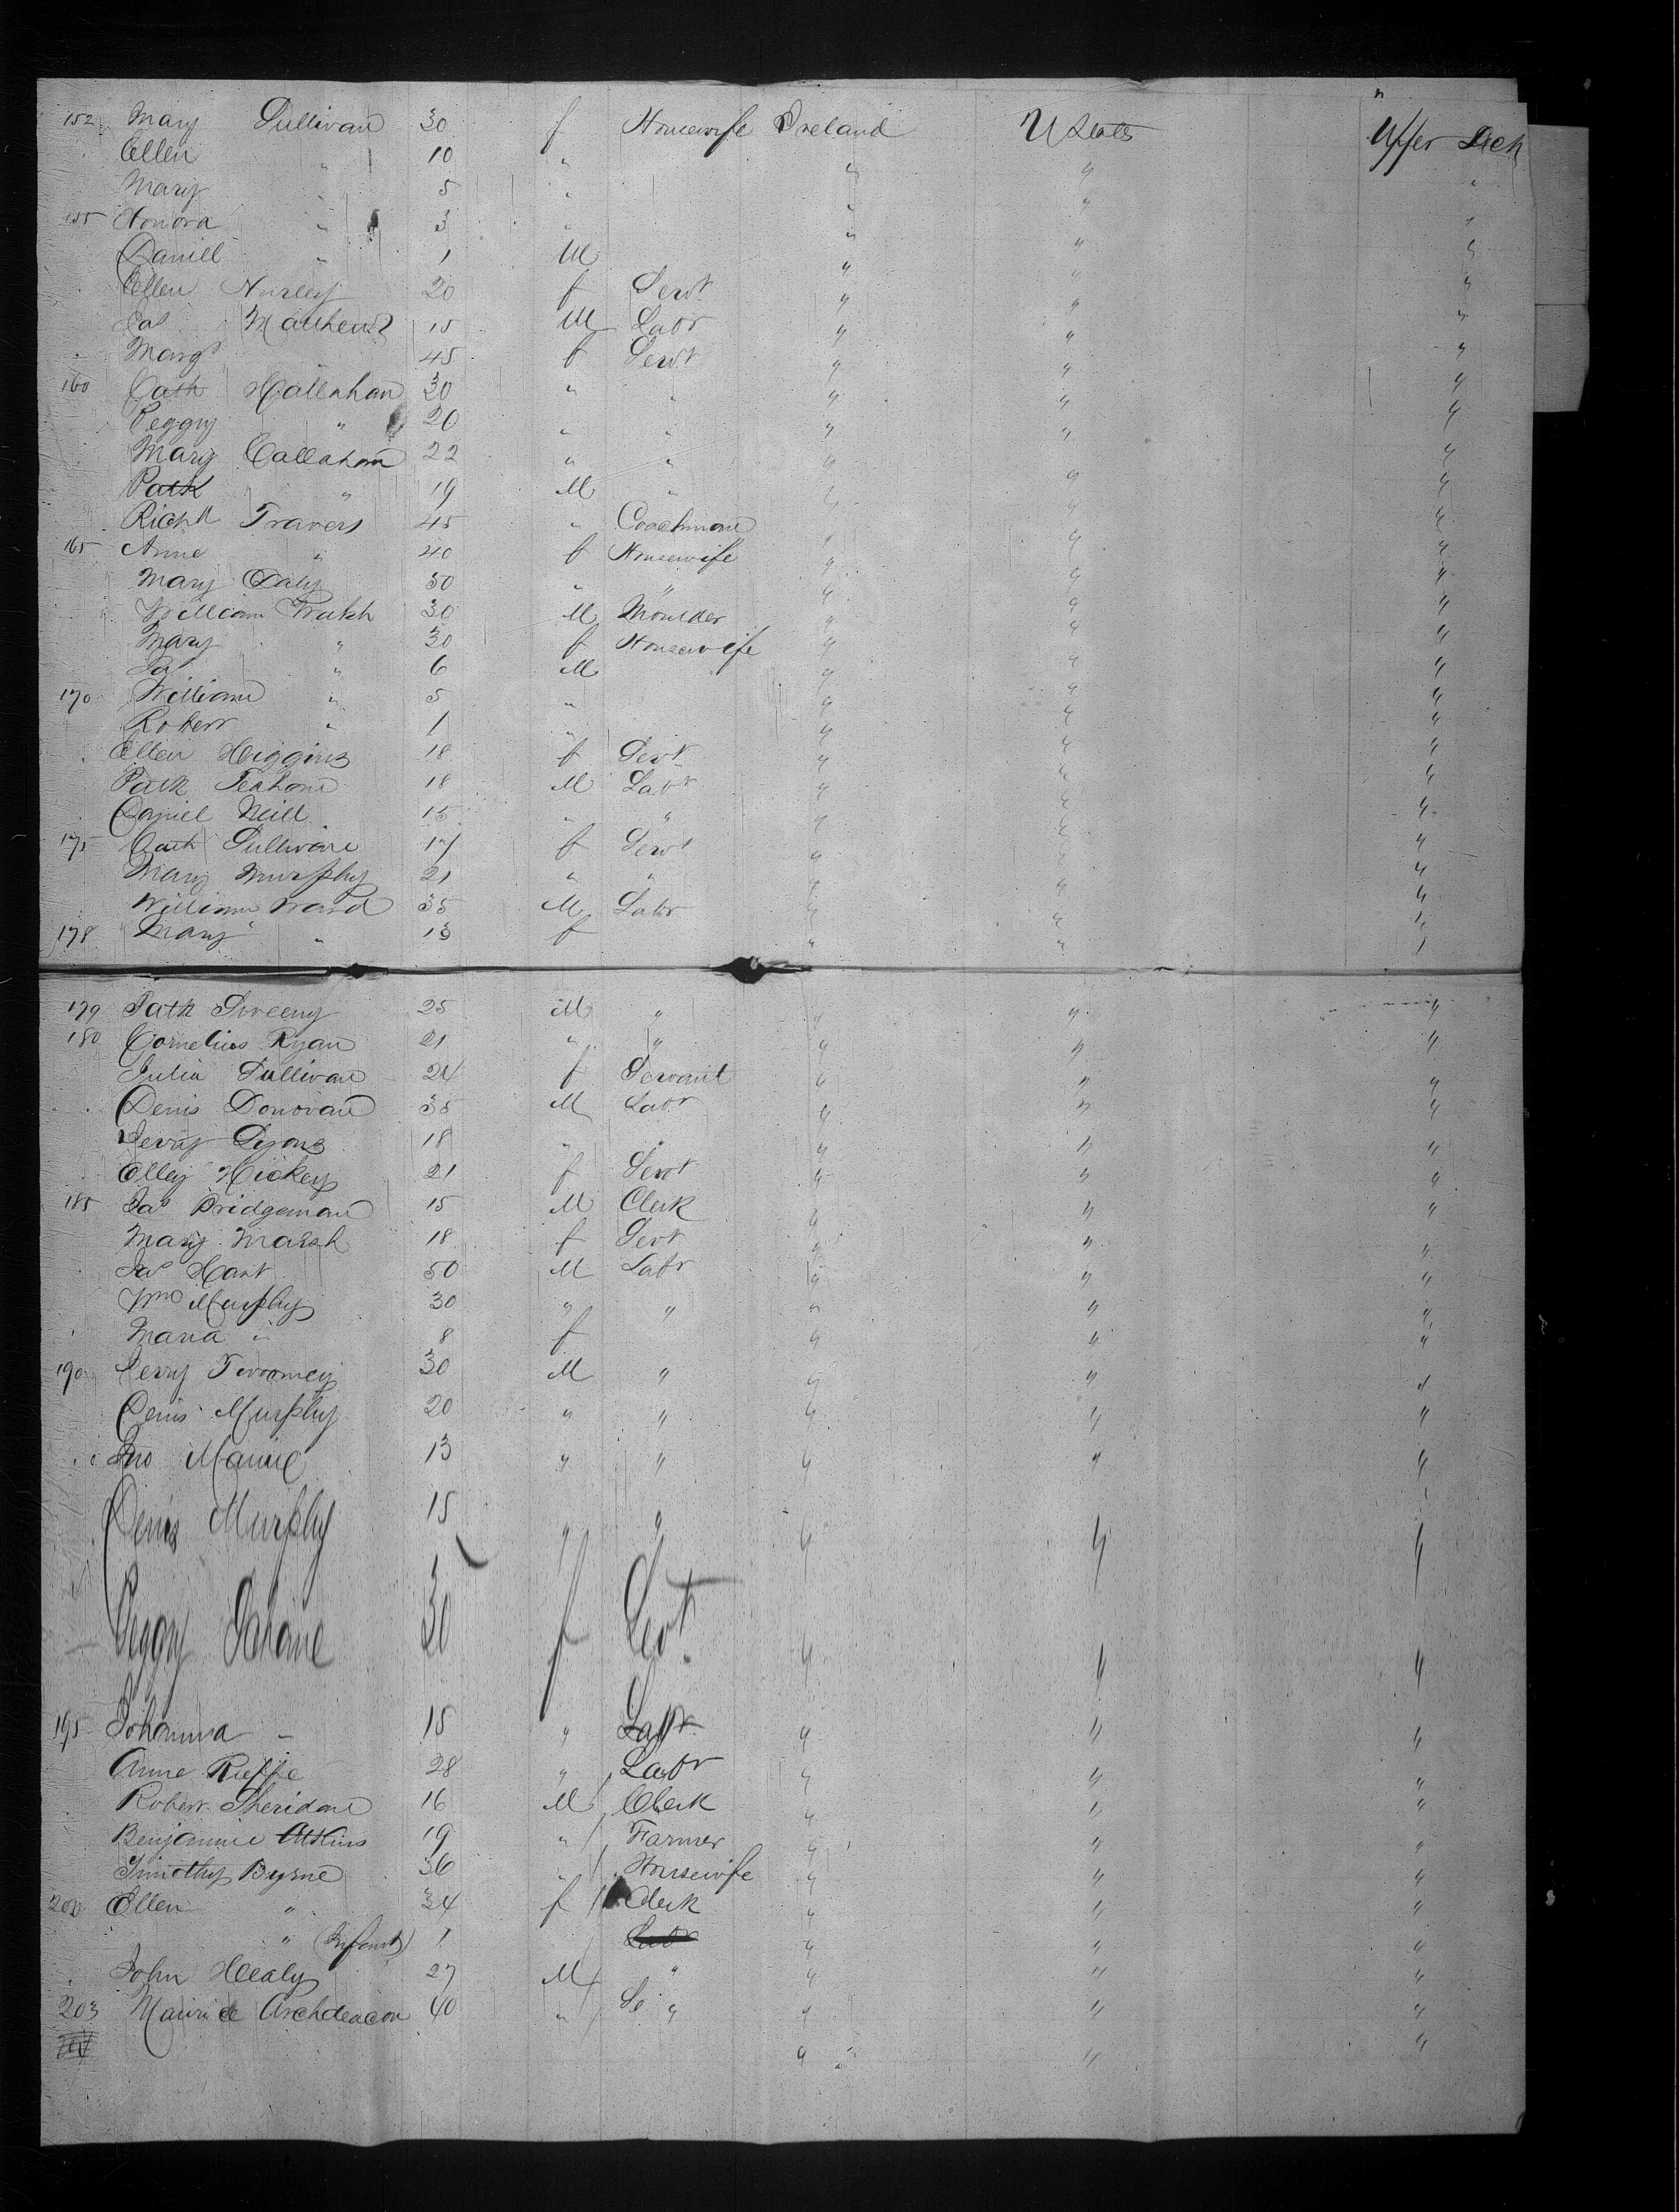 152 Mary Sullivan 30 f Housewife Ireland U States Upper Deck
Ellen " 10 " " " "
Mary " 5 " " " "
155 Honora " 3 " " " "
Daniel " 1 M " " "
Ellen Hurley 20 f Servt " " "
Jas Mathews 15 M Labr " " "
Margt " 45 f Servt " " "
160 Cath Hallahan 30 " " " " "
Peggy " 20 " " " " "
Mary Callahan 22 " " " " "
Patk " 19 M " " " "
Richd Travers 45 " Coachman " " "
165 Anne " 40 f Housewife " " "
Mary Daly 30 " " " " "
William Walsh 30 M Moulder " " "
Mary " 30 f Housewife " " "
Jas " 6 M " " "
170 William " 5 " " " "
Robert " 1 " " " "
Ellen Higgins 18 f Servt " " "
Patk Teahan 18 M Labr " " "
Daniel Neill 15 " " " " "
175 Cath Sullivan 17 f Servt " " "
Mary Murphy 21 " " " " "
William Ward 35 M Labr " " "
178 Mary " 13 f " " "
179 Patk Sweeny 25 M " " " "
180 Cornelius Ryan 21 " " " " "
Julia Sullivan 24 f Servant " " "
Denis Donovan 35 M Labr " " "
Jerry Lyons 18 " " " " "
Elley Hickey 21 f Servt " " "
185 Jas Bridgeman 15 M Clerk " " "
Mary Marsh 18 f Servt " " "
Jas Hart 50 M Labr " " "
Wm Murphy 30 " " " " "
Maria " 8 f " " "
190 Jerry Twoomey 30 M " " " "
Denis Murphy 20 " " " " "
Jno 13 " " " " "
Denis Murphy 15 " " " " "
Peggy 30 f Servt " " "
195 Johanna " 15 " Labr " " "
Anne 28 " Labr " " "
Robert Sheridan 16 M Clerk " " "
Benjamin Atkins 19 " Farmer " " "
Timothy Byrne 36 " Housewife " " "
200 Ellen " 34 f Clerk " " "
" (Infant) 1 Labr " " "
John Healy 27 M " " " "
203 Maurice Archdeacon 40 " " " " "
204 " " "